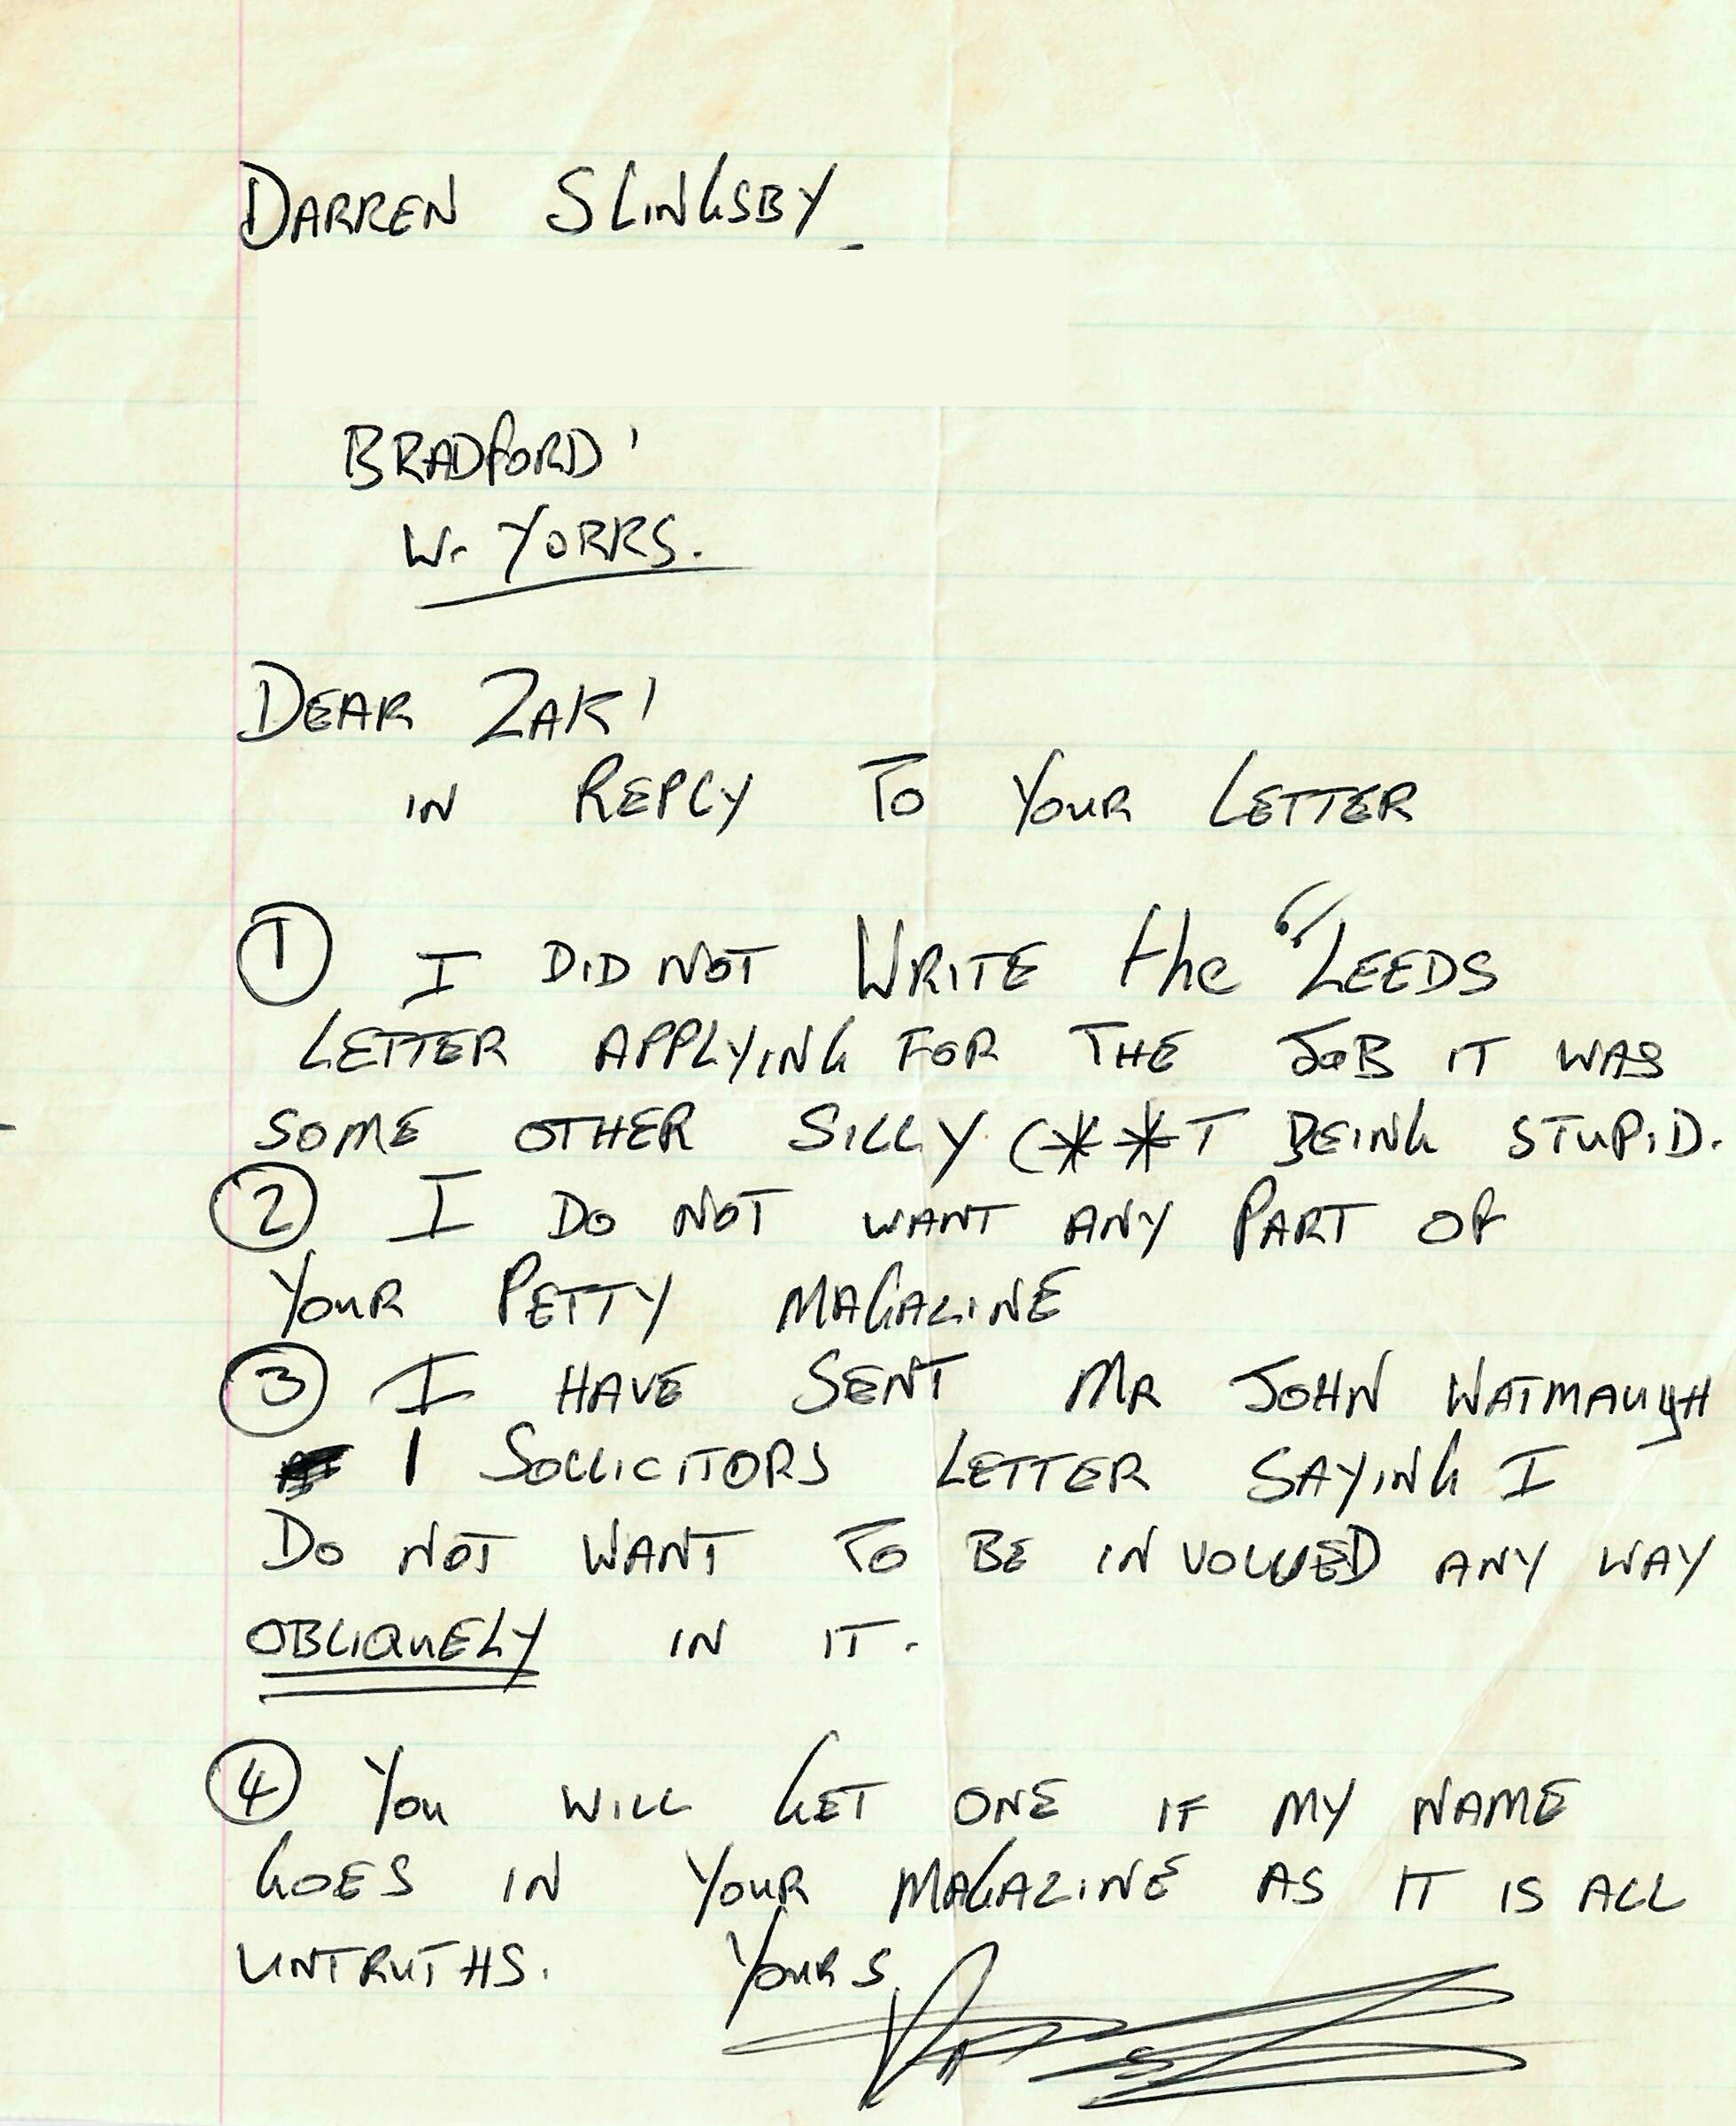 DARREN SLINGSBY
BRADFORD'
W. YORKS.
DEAR ZAK'
IN REPLY TO YOUR LETTER
① I DID NOT WRITE the "LEEDS
LETTER APPLYING FOR THE JOB IT WAS
SOME OTHER SILLY C**T BEING STUPID.
② I DO NOT WANT ANY PART OF
YOUR PETTY MAGAZINE
③ I HAVE SENT MR JOHN WATMAUGH
1 SOLLICITORS LETTER SAYING I
DO NOT WANT TO BE INVOLVED ANY WAY
OBLIQUELY IN IT.
④ YOU WILL GET ONE IF MY NAME
GOES IN YOUR MAGAZINE AS IT IS ALL
UNTRUTHS. YOURS